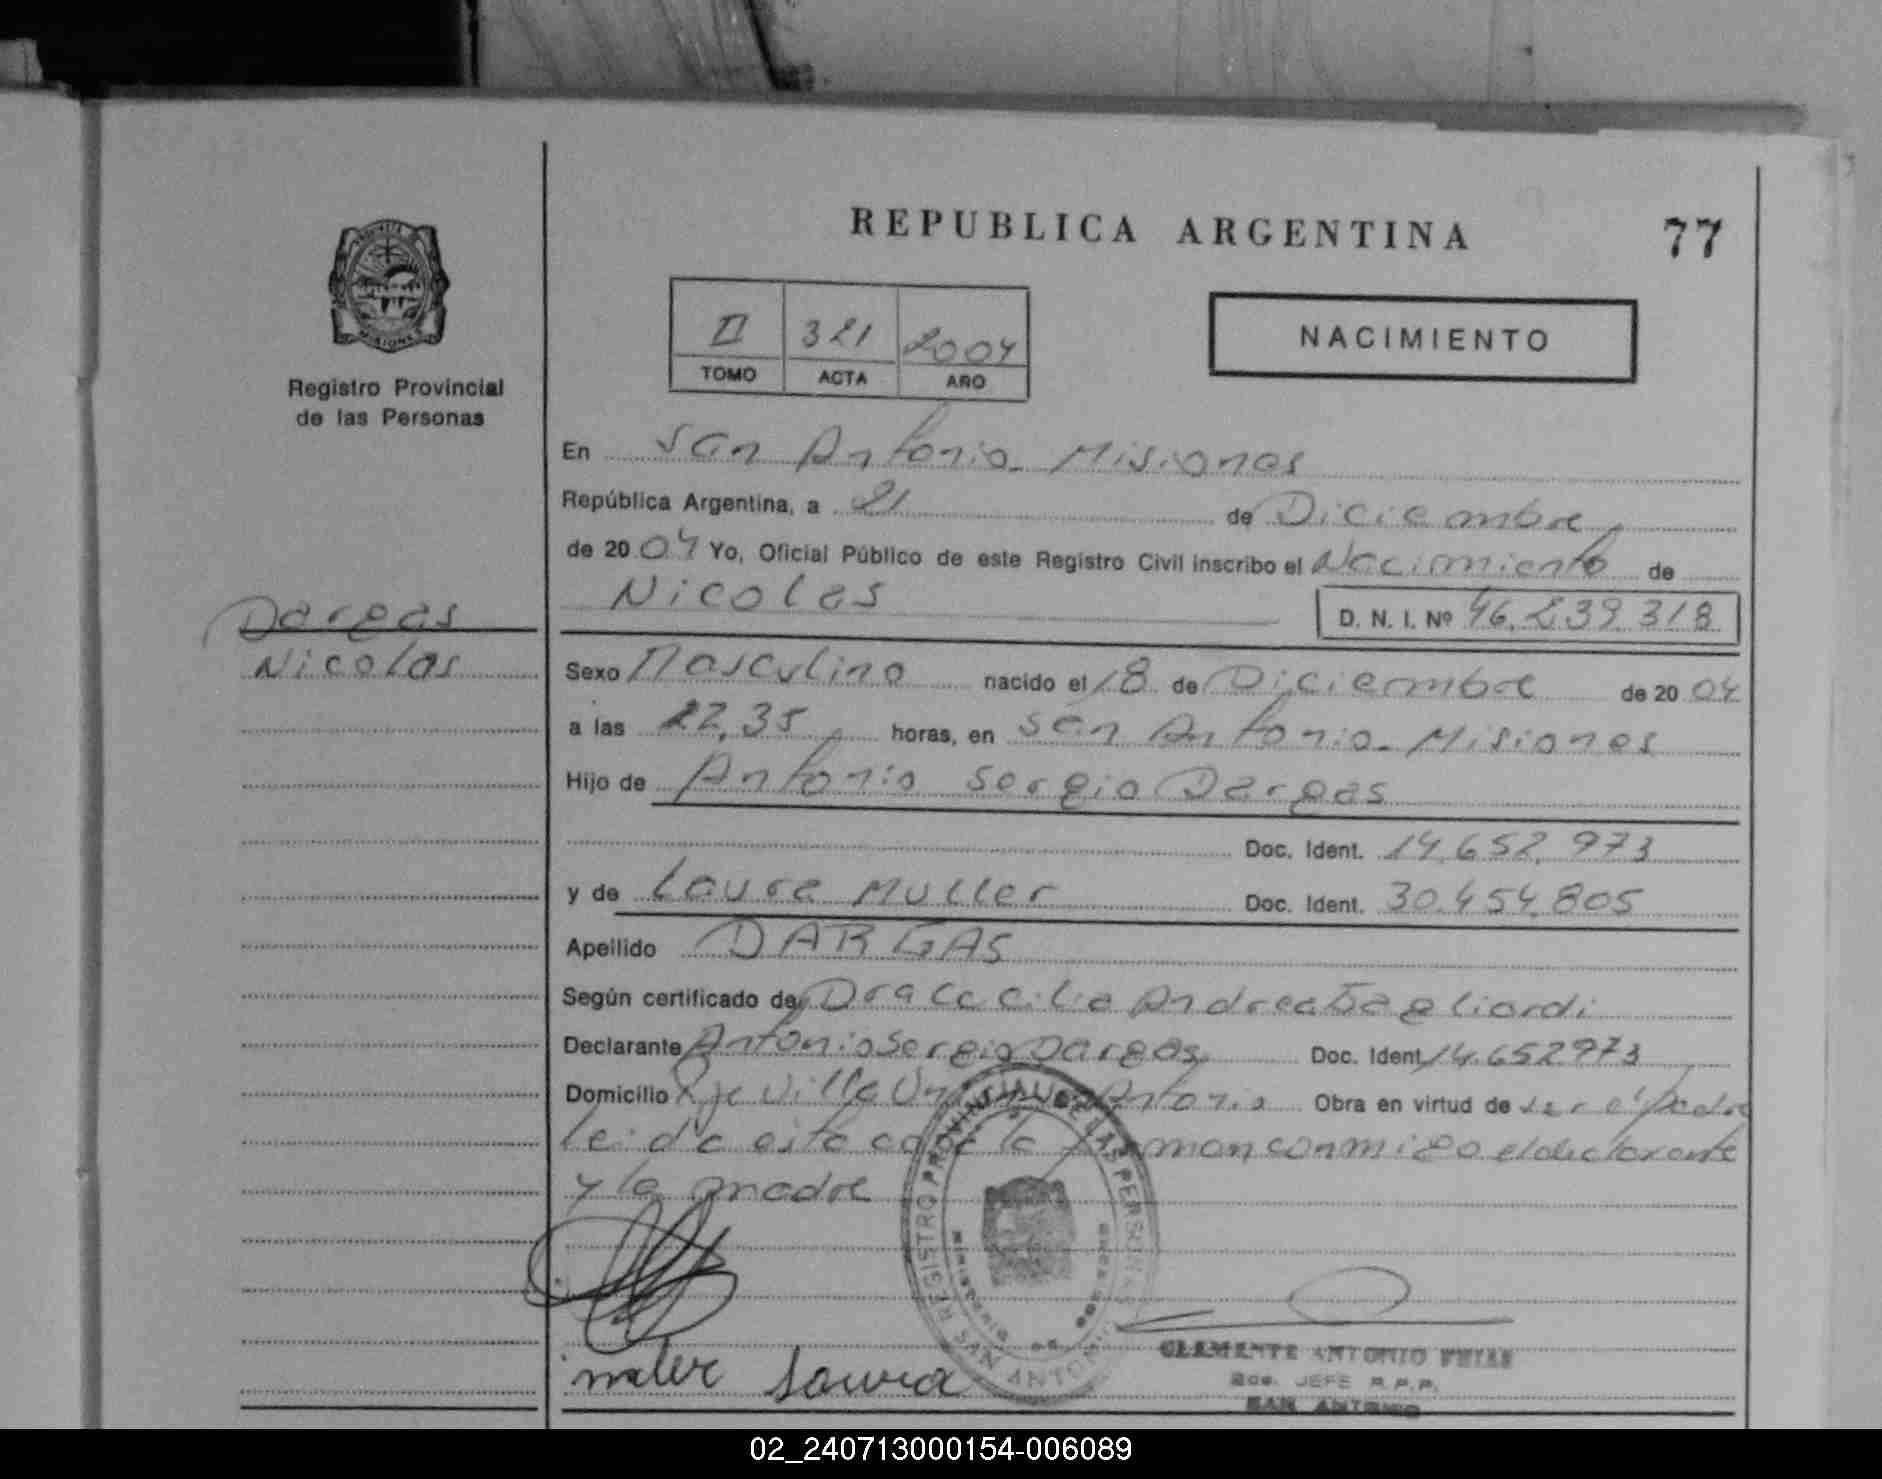 REPUBLICA ARGENTINA
77
II 321 2004
TOMO ACTA AÑO
NACIMIENTO
Registro Provincial
de las Personas
En San Antonio - Misiones
República Argentina, a 21 de Diciembre
de 20 04 Yo, Oficial Público de este Registro Civil inscribo el Nacimiento de
Nicolas
D. N. I. Nº 46.239.318
Dargas
Nicolas
Sexo Masculino nacido el 18 de Diciembre de 20 04
a las 22,35 horas, en San Antonio - Misiones
Hijo de Antonio Sergio Dargas
Doc. Ident. 14.652.973
y de Laura Muller Doc. Ident. 30.454.805
Apellido DARGAS
Según certificado de Dra Cecilia Andrea Bagliardi
Declarante Antonio Sergio Dargas Doc. Ident. 14.652973
Domicilio Villa Antonio Obra en virtud de ser el padre
Leida esta acta la firman conmigo el declarante
y la madre
REGISTRO PROVINCIAL DE LAS PERSONAS
SAN ANTONIO
muler Laura
CLEMENTE ANTONIO
JEFE R.P.P.
SAN ANTONIO
02_240713000154-006089